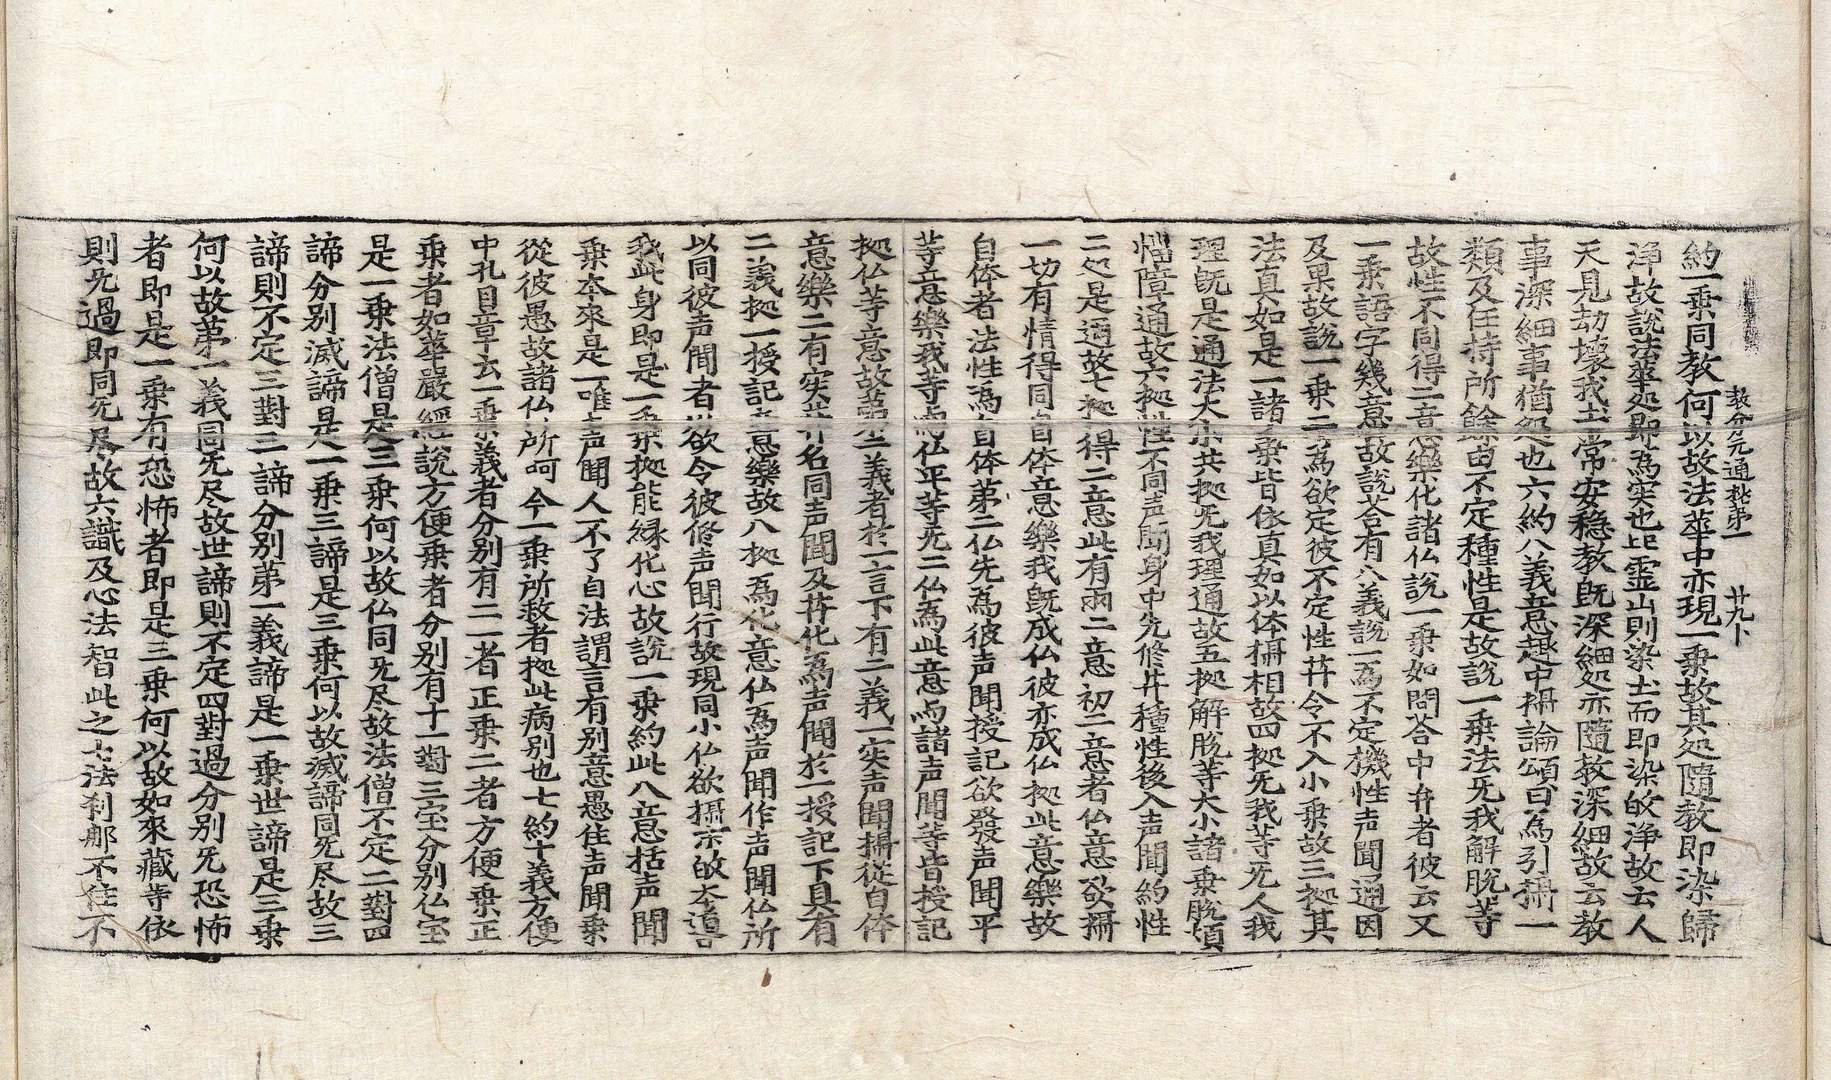 教分记通抄第一　廿九卜
約一乗同教何以故法華中亦現一乗故其処隨教即染歸
浄故說法華処即為实也此霊山則染土而即染故浄故云人
天見劫壊我土常安穏教既深細処亦隨教深細故云教
事深細事猶処也六約八義意趣中攝論頌曰為引攝一
類及任持所餘由不定種性是故說一乗法旡我解脫等
故性不同得二意意樂化諸仏說一乗如問荅中弁者彼云又
一乗語字幾意故說荅有八義說一為不定機性声聞通因
及果故說一乗二為欲定彼不定性菩令不入小乗故三拠其
法真如是一諸乗皆依真如以体攝相故四拠旡我等旡人我
理既是通法大小共拠旡我理通故五拠解脫等大小諸乗脫煩
悩障通故六拠性不同声聞身中先修菩種性後入声聞約性
二処是通故七拠得二意此有兩二意初二意者仏意欲攝
一切有情得同自体意樂我既成仏彼亦成仏拠此意樂故
自体者法性為自体第二仏先為彼声聞授記欲發声聞平
等意樂我等与仏平等旡二仏為此意与諸声聞等皆授記
拠仏等意故第二義者於一言下有二義一实声聞攝從自体
意樂二有实菩名同声聞及菩化為声聞於一授記下具有
二義拠一授記意樂故八拠為化意仏為声聞作声聞仏所
以同彼声聞者以欲令彼修声聞行故現同小仏欲攝末故本遵
我此身即是一乗拠能縁化心故說一乗約此八意括声聞
乗本來是一唯声聞人不了自法謂言有別意愚住声聞乗
從彼愚故諸仏所呵今一乗所救者拠此病別也七約十義方便
中孔目章云一乗義者分別有二一者正乗二者方便乗正
乗者如華嚴經說方便乗者分別有十一對三宝分別仏宝
是一乗法僧是三乗何以故仏同旡尽故法僧不定二對四
諦分別滅諦是一乗三諦是三乗何以故滅諦同旡尽故三
諦則不定三對二諦分別第一義諦是一乗世諦是三乗
何以故第一義同旡尽故世諦則不定四對過分別旡恐怖
者即是一乗有恐怖者即是三乗何以故如來藏等依
則旡過即同旡尽故六識及心法智此之七法刹那不住不